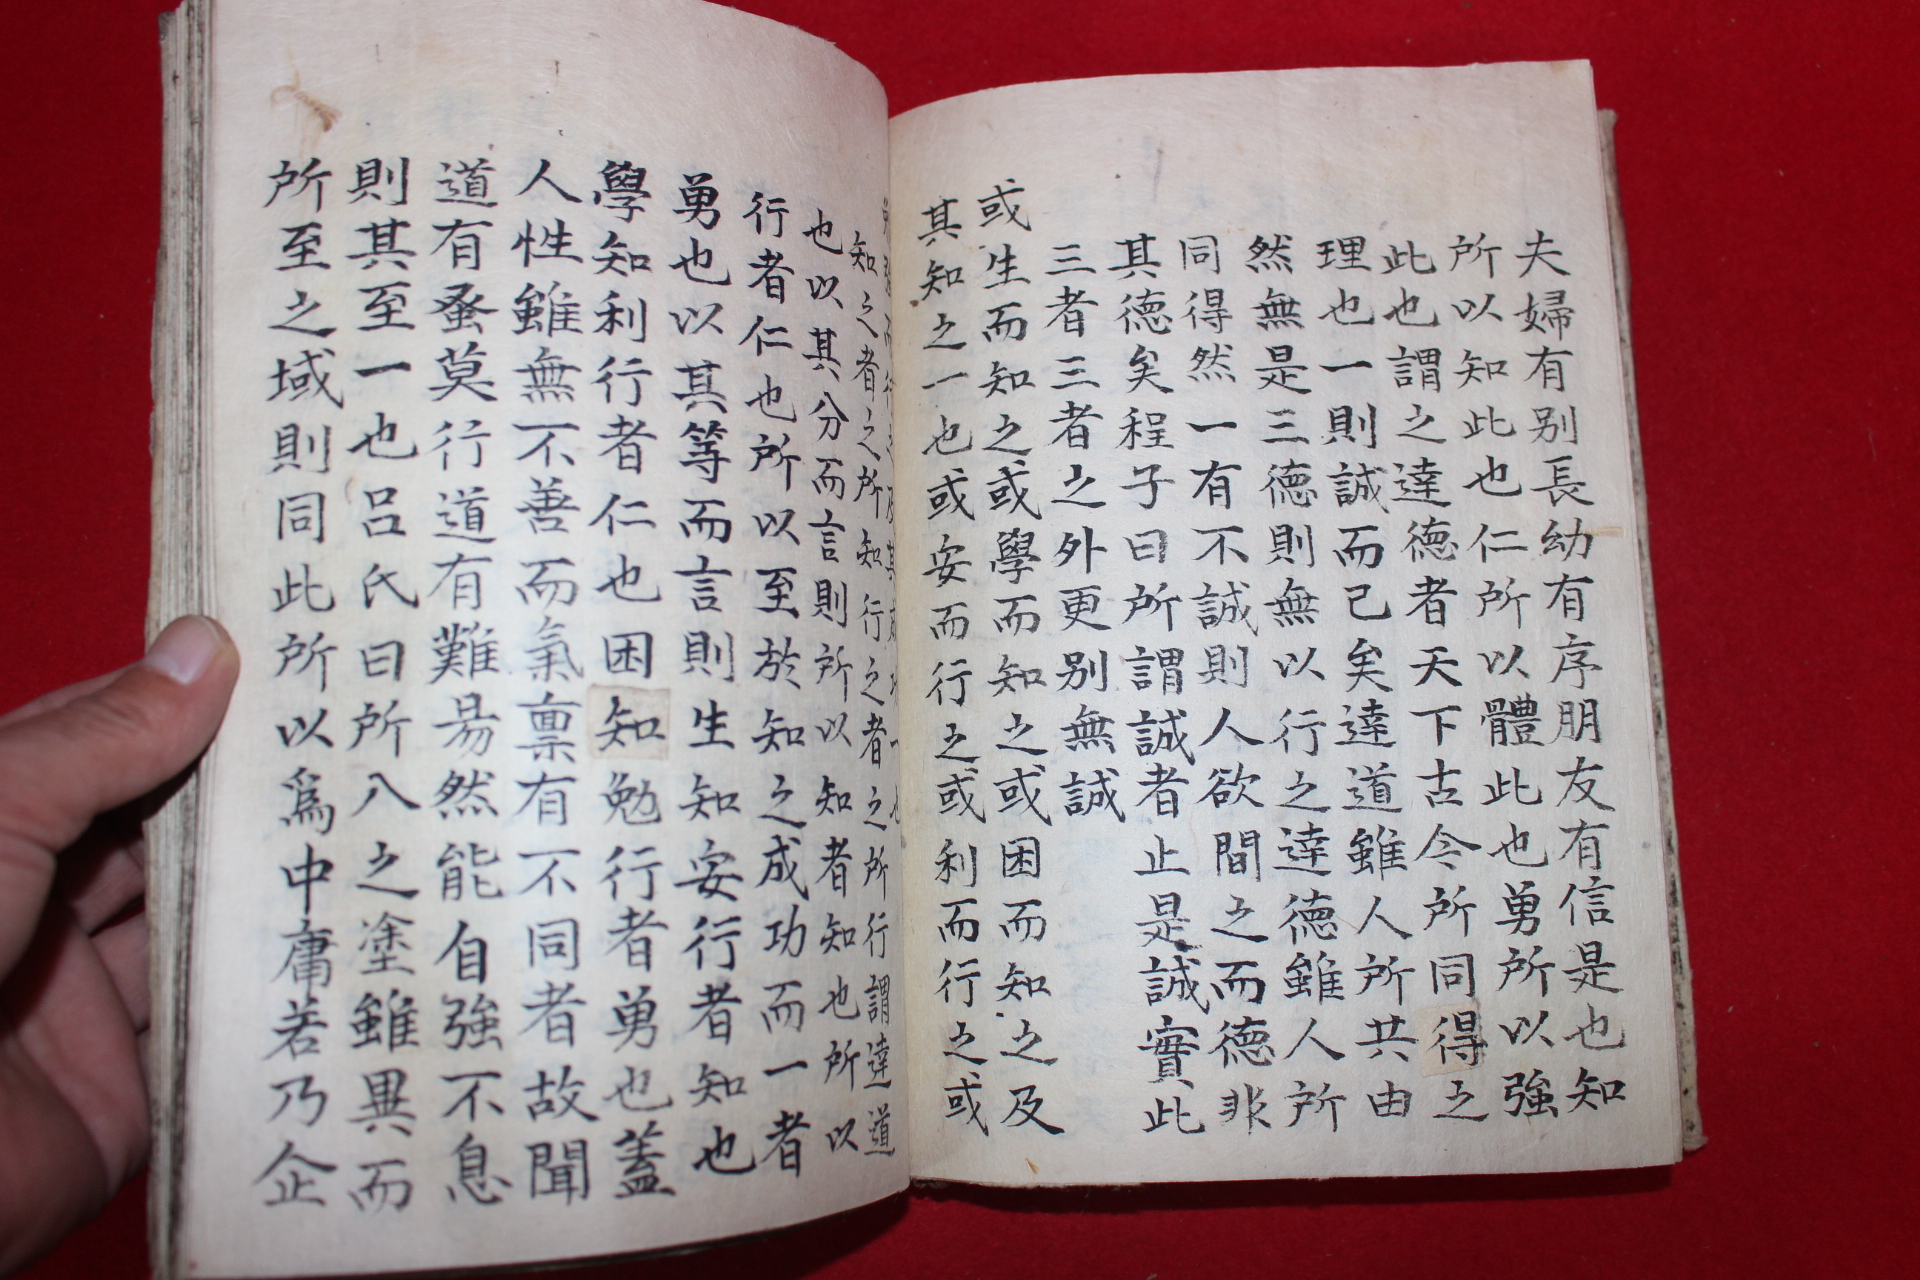 夫婦有别長幼有序朋友有信是也知
所以知此也仁所以體此也勇所以強
此也謂之達德者天下古今所同得之
理也一則誠而己矣達道雖人所共由
然無是三德則無以行之達德雖人所
同得然一有不誠則人欲間之而德非
其德矣程子曰所謂誠者止是誠實此
三者三者之外更别無誠
或生而知之或學而知之或困而知之及
其知之一也或安而行之或利而行之或
勉強而行之及其成功一也
知之者之所知行之者之所行謂達道
也以其分而言則所以知者知也所以
行者仁也所以至於知之成功而一者
勇也以其等而言則生知安行者知也
學知利行者仁也困知勉行者勇也蓋
人性雖無不善而氣禀有不同者故聞
道有蚤莫行道有難易然能自強不息
則其至一也呂氏曰所八之塗雖異而
所至之域則同此所以爲中庸若乃企